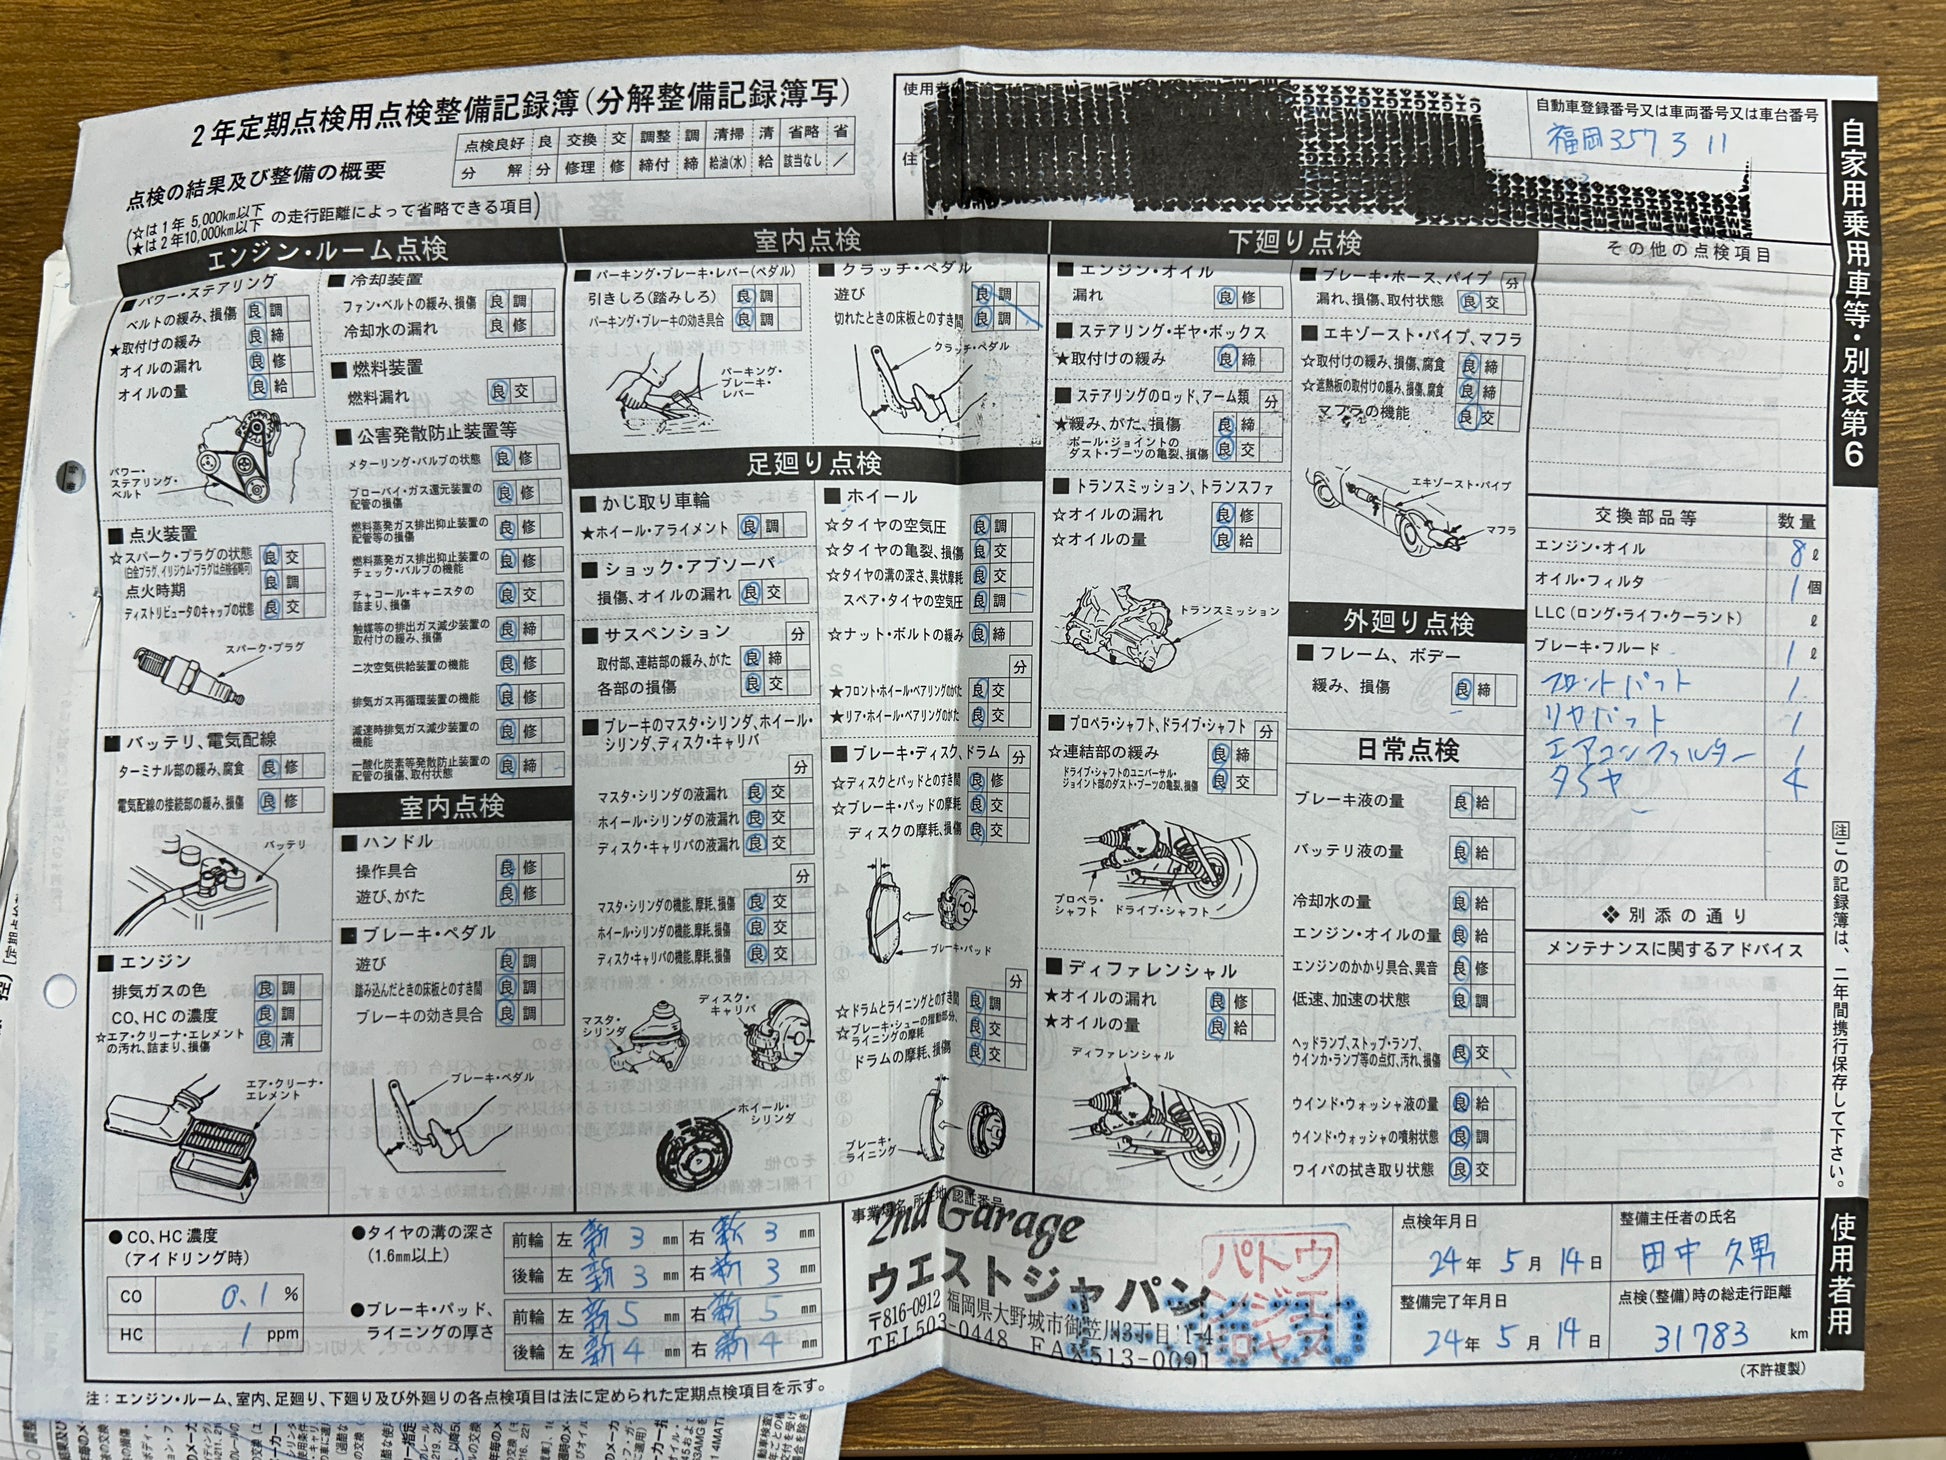 2年定期点検用点検整備記録簿(分解整備記録簿写)
点検の結果及び整備の概要
(☆は1年 5,000km以下
★は2年10,000km以下 の走行距離によって省略できる項目)
点検良好 良 交換 交 調整 調 清掃 清 省略 省
分解 分 修理 修 締付 締 給油(水) 給 該当なし ／
使用者
住
自動車登録番号又は車両番号又は車台番号
福岡357 ろ 11
自家用乗用車等・別表第6
エンジン・ルーム点検
■パワー・ステアリング
ベルトの緩み、損傷 良 調
★取付けの緩み 良 締
オイルの漏れ 良 修
オイルの量 良 給
パワー・
ステアリング・
ベルト
■点火装置
☆スパーク・プラグの状態 良 交
(白金プラグ、イリジウム・プラグは点検省略可)
点火時期 良 調
ディストリビュータのキャップの状態 良 交
スパーク・プラグ
■バッテリ、電気配線
ターミナル部の緩み、腐食 良 修
電気配線の接続部の緩み、損傷 良 修
バッテリ
■エンジン
排気ガスの色 良 調
CO、HCの濃度 良 調
☆エア・クリーナ・エレメント
の汚れ、詰まり、損傷 良 清
エア・クリーナ・
エレメント
■冷却装置
ファン・ベルトの緩み、損傷 良 調
冷却水の漏れ 良 修
■燃料装置
燃料漏れ 良 交
■公害発散防止装置等
メターリング・バルブの状態 良 修
ブローバイ・ガス還元装置の
配管の損傷 良 修
燃料蒸発ガス排出抑止装置の
配管等の損傷 良 修
燃料蒸発ガス排出抑止装置の
チェック・バルブの機能 良 修
チャコール・キャニスタの
詰まり、損傷 良 交
触媒等の排出ガス減少装置の
取付けの緩み、損傷 良 締
二次空気供給装置の機能 良 修
排気ガス再循環装置の機能 良 修
減速時排気ガス減少装置の
機能 良 修
一酸化炭素等発散防止装置の
配管の損傷、取付状態 良 締
室内点検
■ハンドル
操作具合 良 修
遊び、がた 良 修
■ブレーキ・ペダル
遊び 良 調
踏み込んだときの床板とのすき間 良 調
ブレーキの効き具合 良 調
ブレーキ・ペダル
室内点検
■パーキング・ブレーキ・レバー(ペダル)
引きしろ(踏みしろ) 良 調
パーキング・ブレーキの効き具合 良 調
パーキング・
ブレーキ・
レバー
■クラッチ・ペダル
遊び 良 調
切れたときの床板とのすき間 良 調
クラッチ・ペダル
足廻り点検
■かじ取り車輪
★ホイール・アライメント 良 調
■ショック・アブソーバ
損傷、オイルの漏れ 良 交
■サスペンション 分
取付部、連結部の緩み、がた 良 締
各部の損傷 良 交
■ブレーキのマスタ・シリンダ、ホイール・
シリンダ、ディスク・キャリパ
分
マスタ・シリンダの液漏れ 良 交
ホイール・シリンダの液漏れ 良 交
ディスク・キャリパの液漏れ 良 交
分
マスタ・シリンダの機能、摩耗、損傷 良 交
ホイール・シリンダの機能、摩耗、損傷 良 交
ディスク・キャリパの機能、摩耗、損傷 良 交
マスタ・
シリンダ
ディスク・
キャリパ
ホイール・
シリンダ
■ホイール
☆タイヤの空気圧 良 調
☆タイヤの亀裂、損傷 良 交
☆タイヤの溝の深さ、異状摩耗 良 交
スペア・タイヤの空気圧 良 調
☆ナット・ボルトの緩み 良 締
分
★フロント・ホイール・ベアリングのがた 良 交
★リア・ホイール・ベアリングのがた 良 交
■ブレーキ・ディスク、ドラム 分
☆ディスクとパッドとのすき間 良 修
☆ブレーキ・パッドの摩耗 良 交
ディスクの摩耗、損傷 良 交
ブレーキ・パッド
分
☆ドラムとライニングとのすき間 良 調
☆ブレーキ・シューの摺動部分、
ライニングの摩耗 良 交
ドラムの摩耗、損傷 良 交
ブレーキ・
ライニング
下廻り点検
■エンジン・オイル
漏れ 良 修
■ステアリング・ギヤ・ボックス
★取付けの緩み 良 締
■ステアリングのロッド、アーム類 分
★緩み、がた、損傷 良 締
ボール・ジョイントの
ダスト・ブーツの亀裂、損傷 良 交
■トランスミッション、トランスファ
☆オイルの漏れ 良 修
☆オイルの量 良 給
トランスミッション
■プロペラ・シャフト、ドライブ・シャフト 分
☆連結部の緩み 良 締
ドライブ・シャフトのユニバーサル・
ジョイント部のダスト・ブーツの亀裂、損傷 良 交
プロペラ・
シャフト
ドライブ・シャフト
■ディファレンシャル
★オイルの漏れ 良 修
★オイルの量 良 給
ディファレンシャル
■ブレーキ・ホース、パイプ 分
漏れ、損傷、取付状態 良 交
■エキゾースト・パイプ、マフラ
☆取付けの緩み、損傷、腐食 良 締
☆遮熱板の取付けの緩み、損傷、腐食 良 締
マフラの機能 良 交
エキゾースト・パイプ
マフラ
外廻り点検
■フレーム、ボデー
緩み、損傷 良 締
日常点検
ブレーキ液の量 良 給
バッテリ液の量 良 給
冷却水の量 良 給
エンジン・オイルの量 良 給
エンジンのかかり具合、異音 良 修
低速、加速の状態 良 調
ヘッドランプ、ストップ・ランプ、
ウインカ・ランプ等の点灯、汚れ、損傷 良 交
ウインド・ウォッシャ液の量 良 給
ウインド・ウォッシャの噴射状態 良 調
ワイパの拭き取り状態 良 交
その他の点検項目
交換部品等 数量
エンジン・オイル 8 ℓ
オイル・フィルタ 1 個
LLC(ロング・ライフ・クーラント) ℓ
ブレーキ・フルード 1 ℓ
フロントパット 1
リヤパット 1
エアコンフィルター 1
タイヤ 4
❖別添の通り
メンテナンスに関するアドバイス
注この記録簿は、二年間携行保存して下さい。
使用者用
●CO、HC濃度
(アイドリング時)
CO 0.1 %
HC 1 ppm
●タイヤの溝の深さ
(1.6mm以上)
前輪 左 新 3 mm 右 新 3 mm
後輪 左 新 3 mm 右 新 3 mm
●ブレーキ・パッド、
ライニングの厚さ
前輪 左 新 5 mm 右 新 5 mm
後輪 左 新 4 mm 右 新 4 mm
事業場名、所在地、認証番号
2nd Garage
ウエストジャパン
〒816-0912 福岡県大野城市御笠川3丁目1-4
TEL503-0448 FAX513-0091
点検年月日
24年 5月 14日
整備主任者の氏名
田中 久男
整備完了年月日
24年 5月 14日
点検(整備)時の総走行距離
31783 km
(不許複製)
注：エンジン・ルーム、室内、足廻り、下廻り及び外廻りの各点検項目は法に定められた定期点検項目を示す。